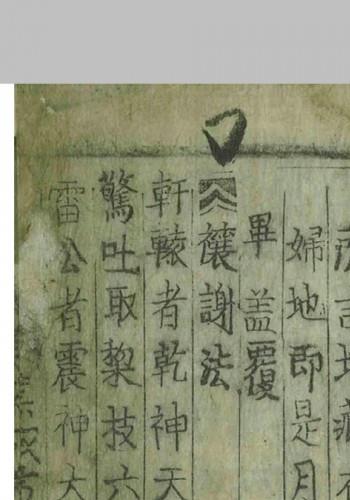 婦地即是月
畢盖覆
禳謝法
軒轅者乾神天
驚吐取棃技六
雷公者震神大